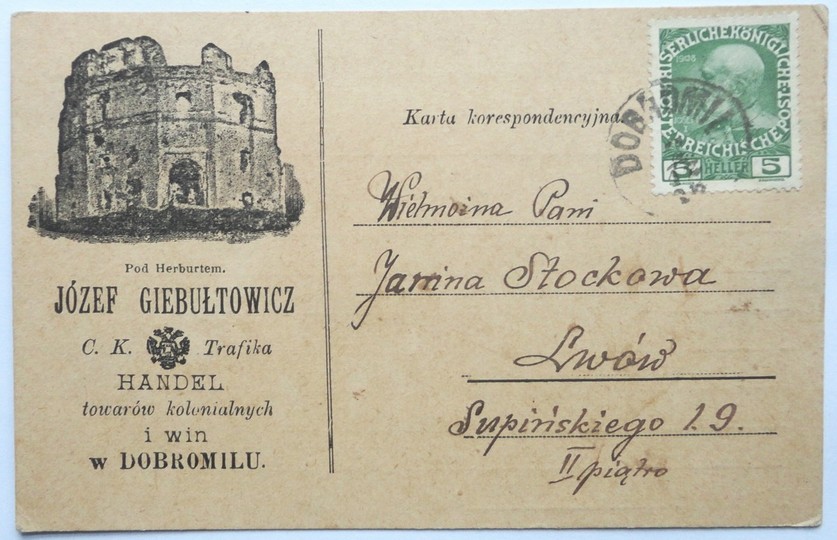 Pod Herburtem.
JÓZEF GIEBUŁTOWICZ
C. K. Trafika
HANDEL
towarów kolonialnych
i win
w DOBROMILU.
Karta korespondencyjna.
KAISERLICHE KÖNIGLICHE
ÖSTERREICHISCHE POST
1908
5 HELLER 5
DOBROMIL
Wielmożna Pani
Janina Stockowa
Lwów
Supińskiego l. 9.
II piątro